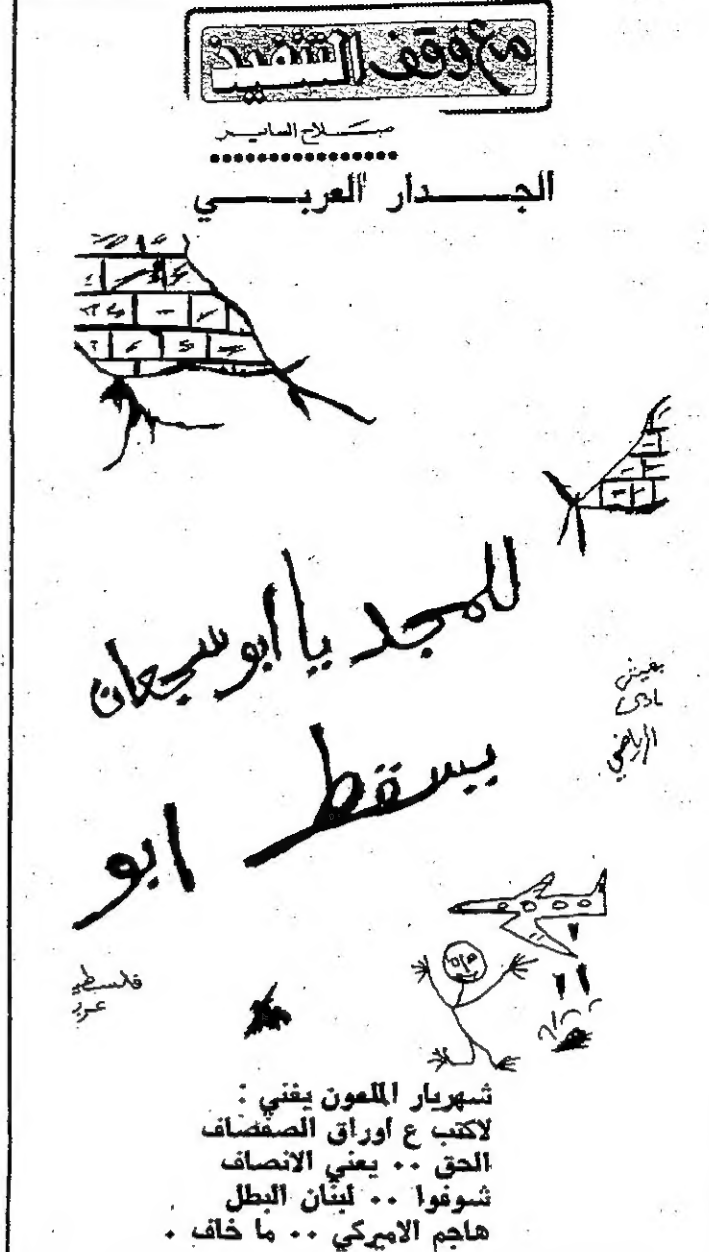 مع وقف التنفيذ
صلاح الساير
الجدار العربي
للمجد يا ابو شجعان
يعيش
نادي
الرياضي
يسقط ابو
فلسطيـ
عربـ
شهريار الملعون يغني :
لاكتب ع أوراق الصفصاف
الحق .. يعني الانصاف
شوفوا .. لبنان البطل
هاجم الاميركي .. ما خاف .